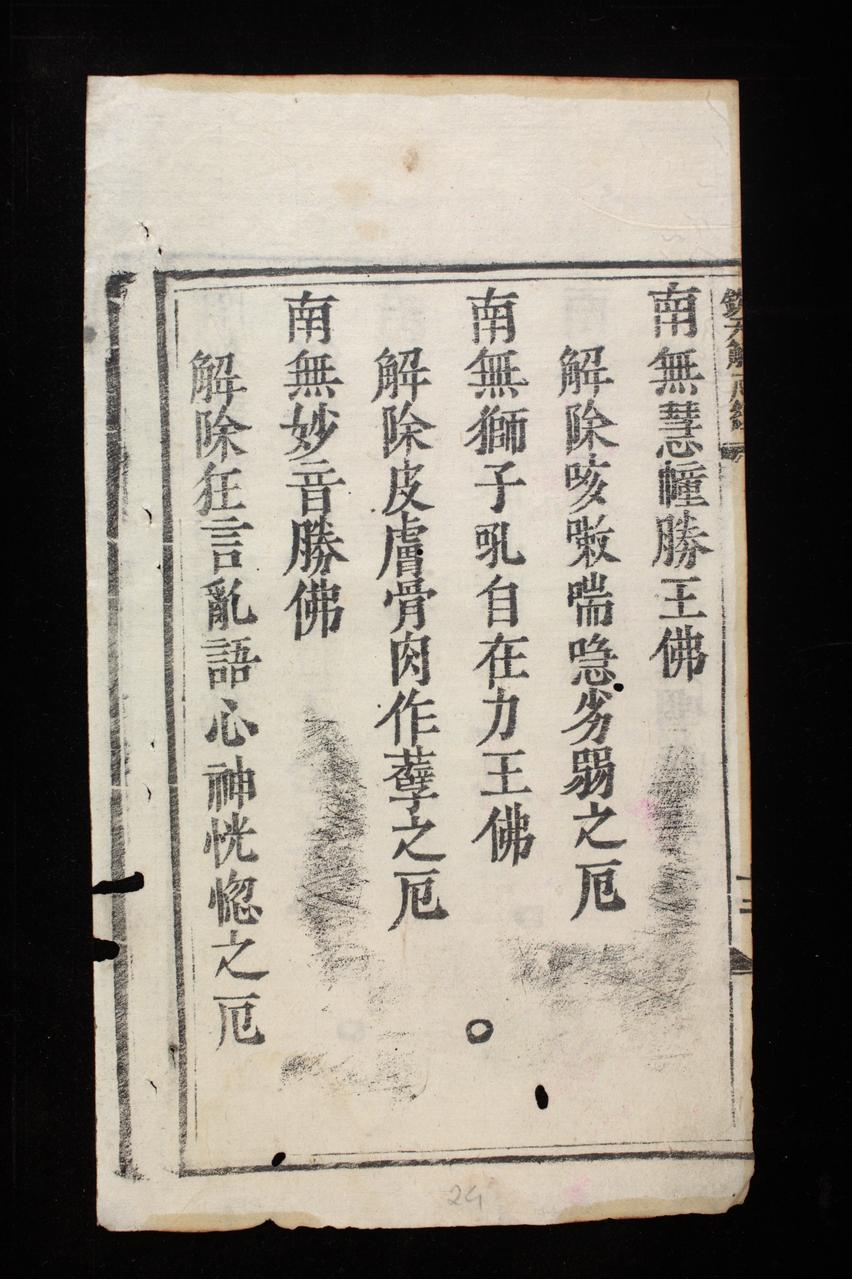 南無慧幢勝王佛
解除咳嗽喘急劣弱之厄
南無獅子吼自在力王佛
解除皮膚骨肉作孽之厄
南無妙音勝佛
解除狂言亂語心神恍惚之厄
24